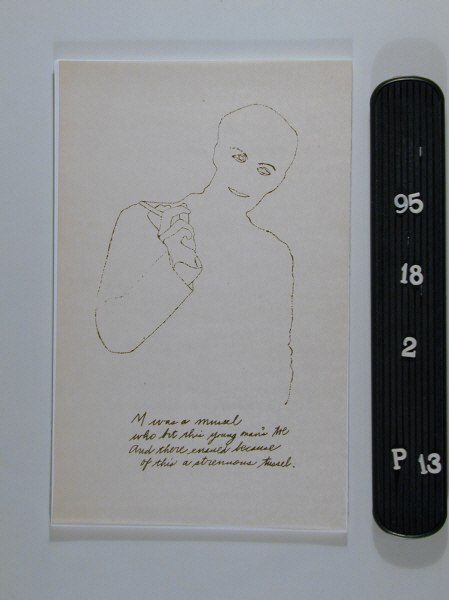 M was a mussel
who bit this young man's toe
And there ensued because
of this a strenuous tussel.
95
18
2
P 13